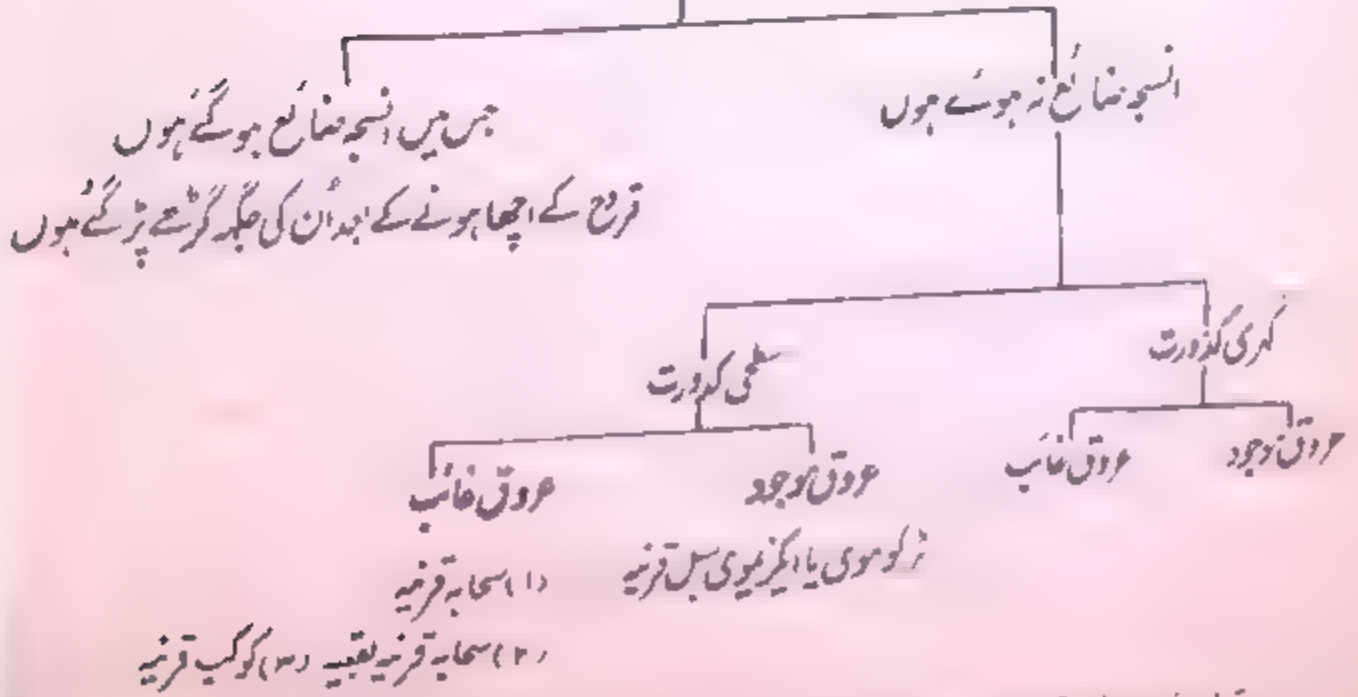 انسجہ ضائع نہ ہوئے ہوں
جس میں انسجہ ضائع ہوگئے ہوں
قروح کے اچھا ہونے کے بعد اُن کی جگہ گڑھے پڑ گئے ہوں
گہری کدورت
سطحی کدورت
عروق موجود
عروق غائب
عروق موجود
عروق غائب
ٹرکوموی یا ایگزیموی سبل قرنیہ
(۱) سحابہ قرنیہ
(۲) سحابہ قرنیہ نقبیہ (۳) کوکب قرنیہ